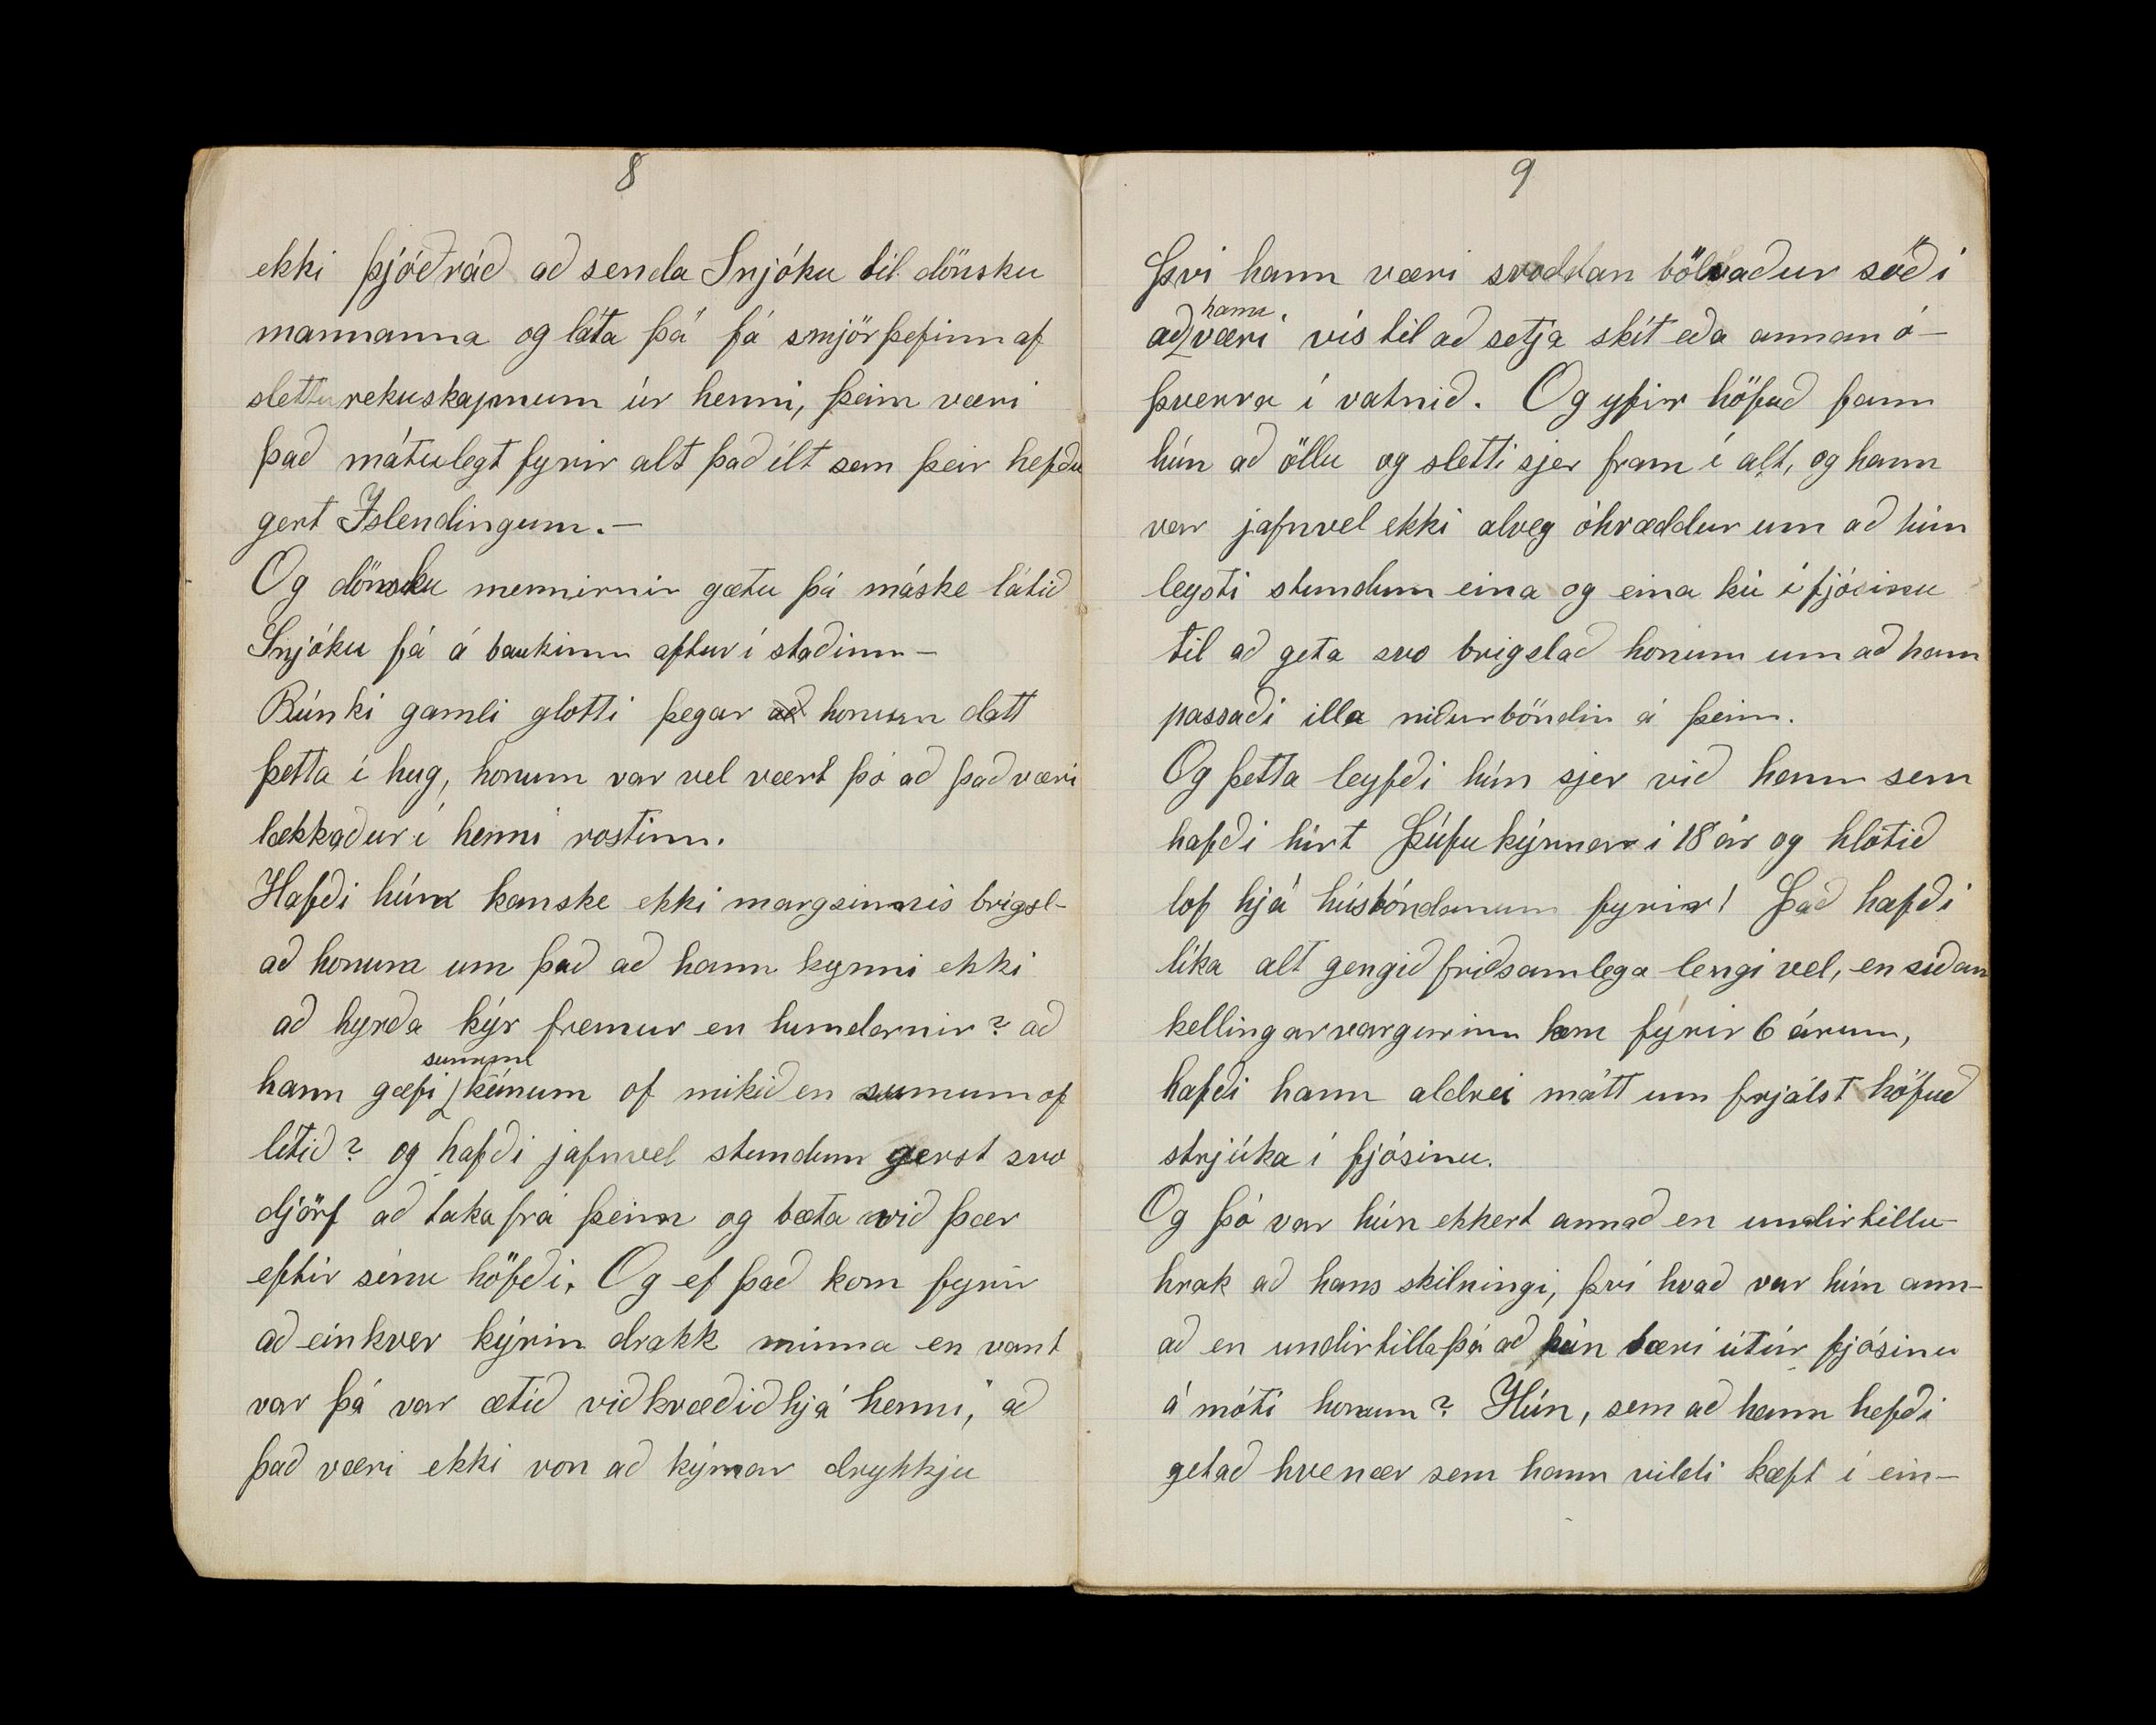 8
ekki þjóðráð að senda Snjóku til dönsku
mannanna og láta þá fá smjörþefinn af
slettirekuskapnum úr henni, þeim væri
það mátulegt fyrir alt það ilt sem þeir hefðu
gert Islendingum.—
Og dönsku mennirnir gætu þá máske látið
Snjóku fá á baukinn aftur í staðinn—
Rúnki gamli glotti þegar honum datt
þetta í hug, honum var vel vært þó að það væri
lækkaður í henni rostinn.
Hafði hún kanske ekki margsinnis brigsl-
að honum um það að hann kynni ekki
að hyrða kýr fremur en hundarnir? að
hann gæfi sumum kúnum of mikið en sumum of
lítið? og hafði jafnvel stundum gerst svo
djörf að taka frá þeim og bæta við þær
eftir sínu höfði. Og ef það kom fyrir
að einkver kýrin drakk minna en vant
var þá var ætið viðkvæðið hjá henni, að
það væri ekki von að kýrnar drykkju
9
því hann væri svoddan bölvaður sóði
að hann væri vís til að setja skít eða annan ó-
þverra í vatnið. Og yfir höfuð fann
hún að öllu og sletti sjer fram í alt, og hann
var jafnvel ekki alveg óhræddur um að hún
leysti stundum eina og eina kú í fjósinu
til að geta svo brigslað honum um að hann
passaði illa niðurböndin á þeim.
Og þetta leyfði hún sjer við hann sem
hafði hirt Þúfukýrnar í 18 ár og hlotið
lof hjá húsbóndanum fyrir! Það hafði
líka alt gengið friðsamlega lengi vel, en síðan
kellingarvargurinn kom fyrir 6 árum,
hafði hann aldrei mátt um frjálst höfuð
strjúka í fjósinu.
Og þó var hún ekkert annað en undirtillu-
hrak að hans skilningi, því hvað var hún ann-
að en undirtilla þá að hún bæri útúr fjósinu
á móti honum? Hún, sem að hann hefði
getað hvenær sem hann vildi kæft í ein-